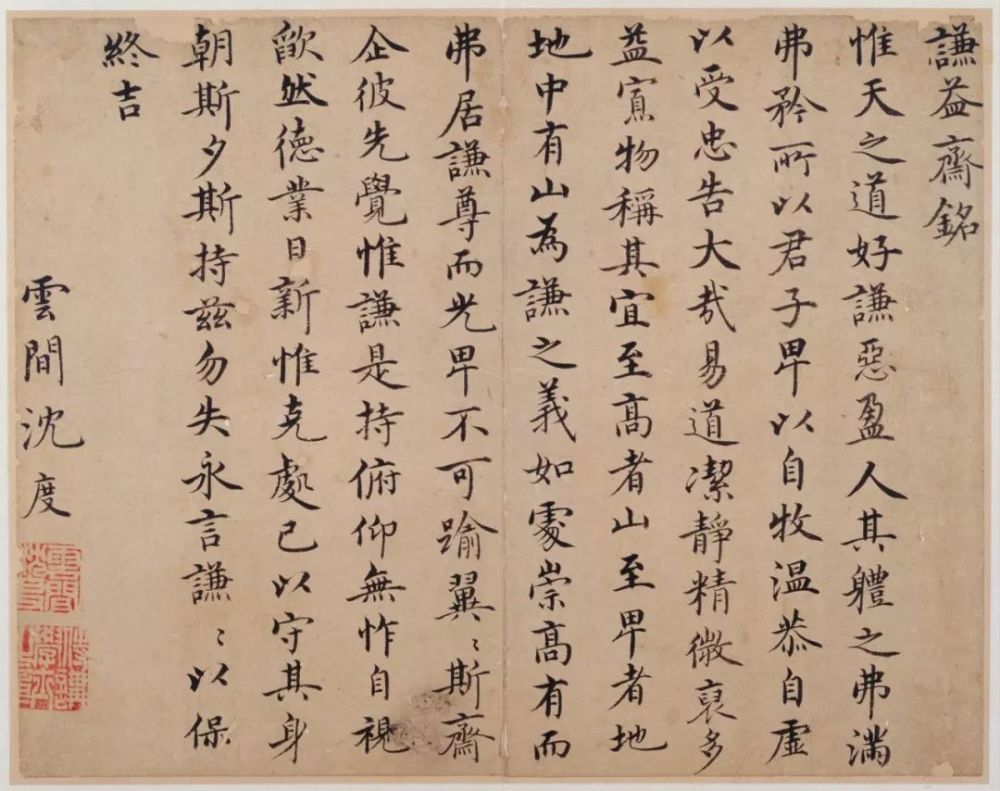 謙益齋銘
惟天之道好謙惡盈人其軆之弗滿
弗矜所以君子卑以自牧温恭自虛
以受忠告大哉易道潔靜精微裒多
益寡物稱其宜至髙者山至卑者地
地中有山為謙之義如處崇髙有而
弗居謙尊而光卑不可踰翼〻斯齋
企彼先覺惟謙是持俯仰無怍自視
欿然德業日新惟克處己以守其身
朝斯夕斯持兹勿失永言謙〻以保
終吉
雲間沈度